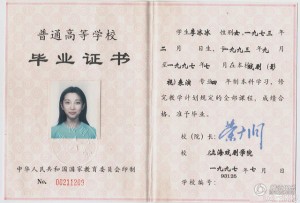 普通高等学校
毕业证书
中华人民共和国国家教育委员会印制
No. 00211209
学生 李冰冰 性别女,一九七三年
二月 日生,于一九九三年九
月至一九九七年七月在本校戏剧(影
视)表演 专业四年制本科学习,修
完教学计划规定的全部课程,成绩合
格,准予毕业。
校(院)长:
校(院):上海戏剧学院
一九九七年七月 日
学校编号: